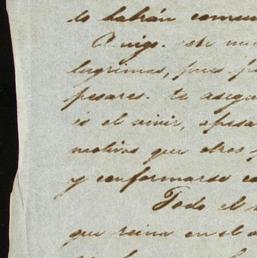 lo habrán comun
Amigo. este mu
lagrimas, pues p
pesares. te asegu
is el vivir, apesa
motivos que otros p
y conformarse co
Todo el
que reina en el a